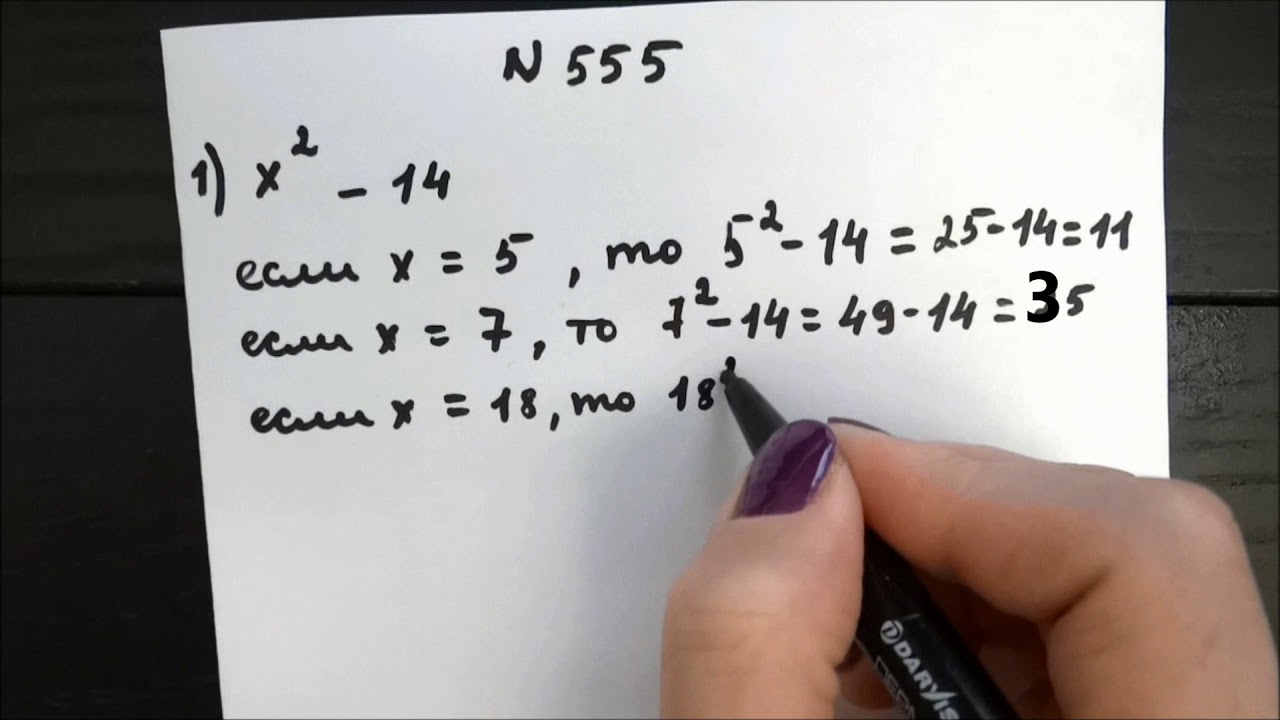 N 555
1) x² - 14
если x = 5, то 5² - 14 = 25 - 14 = 11
если x = 7, то 7² - 14 = 49 - 14 = 35
если x = 18, то 18²
DARVIS